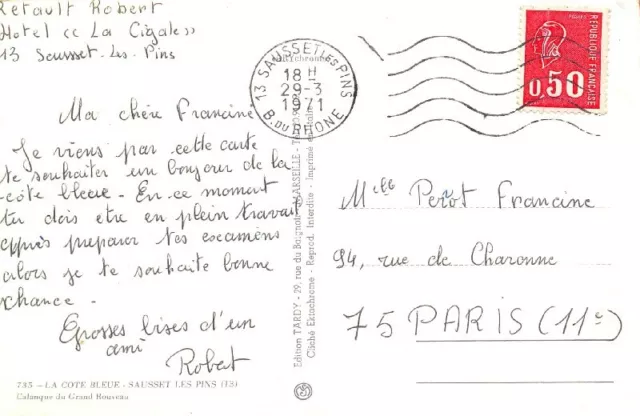 Retault Robert
Hotel << La Cigale>>
13 Sausset-les-Pins
Ma chère Francine
Je viens par cette carte
te souhaiter un bonjour de la
côte bleue - En ce moment
tu dois etre en plein travail
apprès préparer tes escamens
alors je te souhaite bonne
chance -
Grosses bises d'un
ami
Robert
735 - LA COTE BLEUE - SAUSSET LES PINS (13)
Calanque du Grand Rouveau
Edition TARDY - 29, rue du Baignoir - MARSEILLE - Tél.
Cliché Ektachrome - Reprod. Interdite - Imprimé en
13 SAUSSET LES PINS
18 H
29-3
1971
B. DU RHONE
REPUBLIQUE FRANÇAISE
0,50
Melle Perot Francine
94, rue de Charonne
75 PARIS (11e)